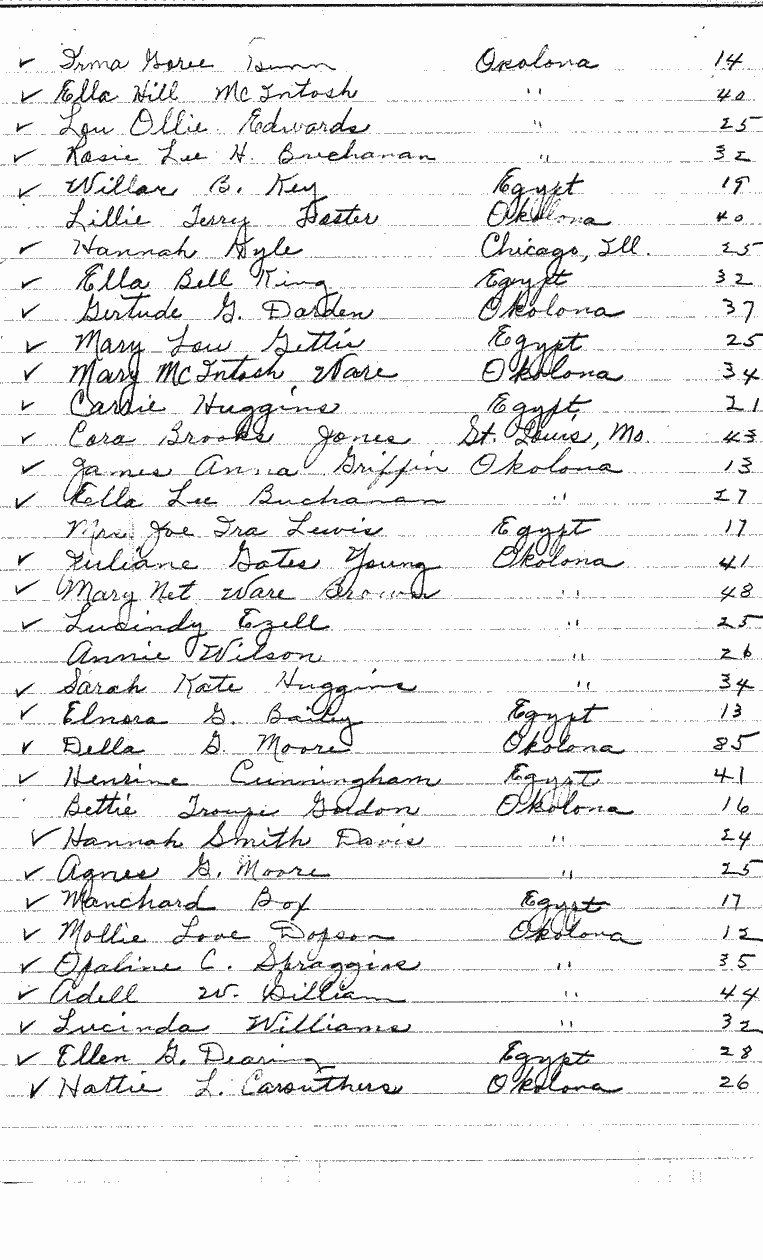 ✓ Irma Goree Okolona 14
✓ Ella Hill McIntosh " 40
✓ Lou Ollie Edwards " 25
✓ Rosie Lee H. Buchanan " 32
✓ Willar B. Key Egypt 19
Lillie Terry Foster Okolona 40
✓ Hannah Gyle Chicago, Ill. 25
✓ Ella Bell King Egypt 32
✓ Gertude G. Darden Okolona 37
✓ Mary Lou Gettis Egypt 25
✓ Mary McIntosh Ware Okolona 34
✓ Carrie Huggins Egypt 21
✓ Cora Brooks Jones St. Louis, Mo. 43
✓ James Anna Griffin Okolona 13
✓ Ella Lee Buchanan " 27
Mrs. Joe Ira Lewis Egypt 17
✓ Juliane Gates Young Okolona 41
✓ Mary Net Ware Brown " 48
✓ Lucindy Ezell " 25
Annie Wilson " 26
✓ Sarah Kate Huggins " 34
✓ Elnora G. Bailey Egypt 13
✓ Della G. Moore Okolona 85
✓ Henrine Cunningham Egypt 41
Bettie Gordon Okolona 16
✓ Hannah Smith Davis " 24
✓ Agnes G. Moore " 25
✓ Manchard Box Egypt 17
✓ Mollie Love Dopson Okolona 12
✓ Opaline C. Spraggins " 35
✓ Adell W. Gilliam " 44
✓ Lucinda Williams " 32
✓ Ellen G. Dearing Egypt 28
✓ Hattie L. Carouthers Okolona 26